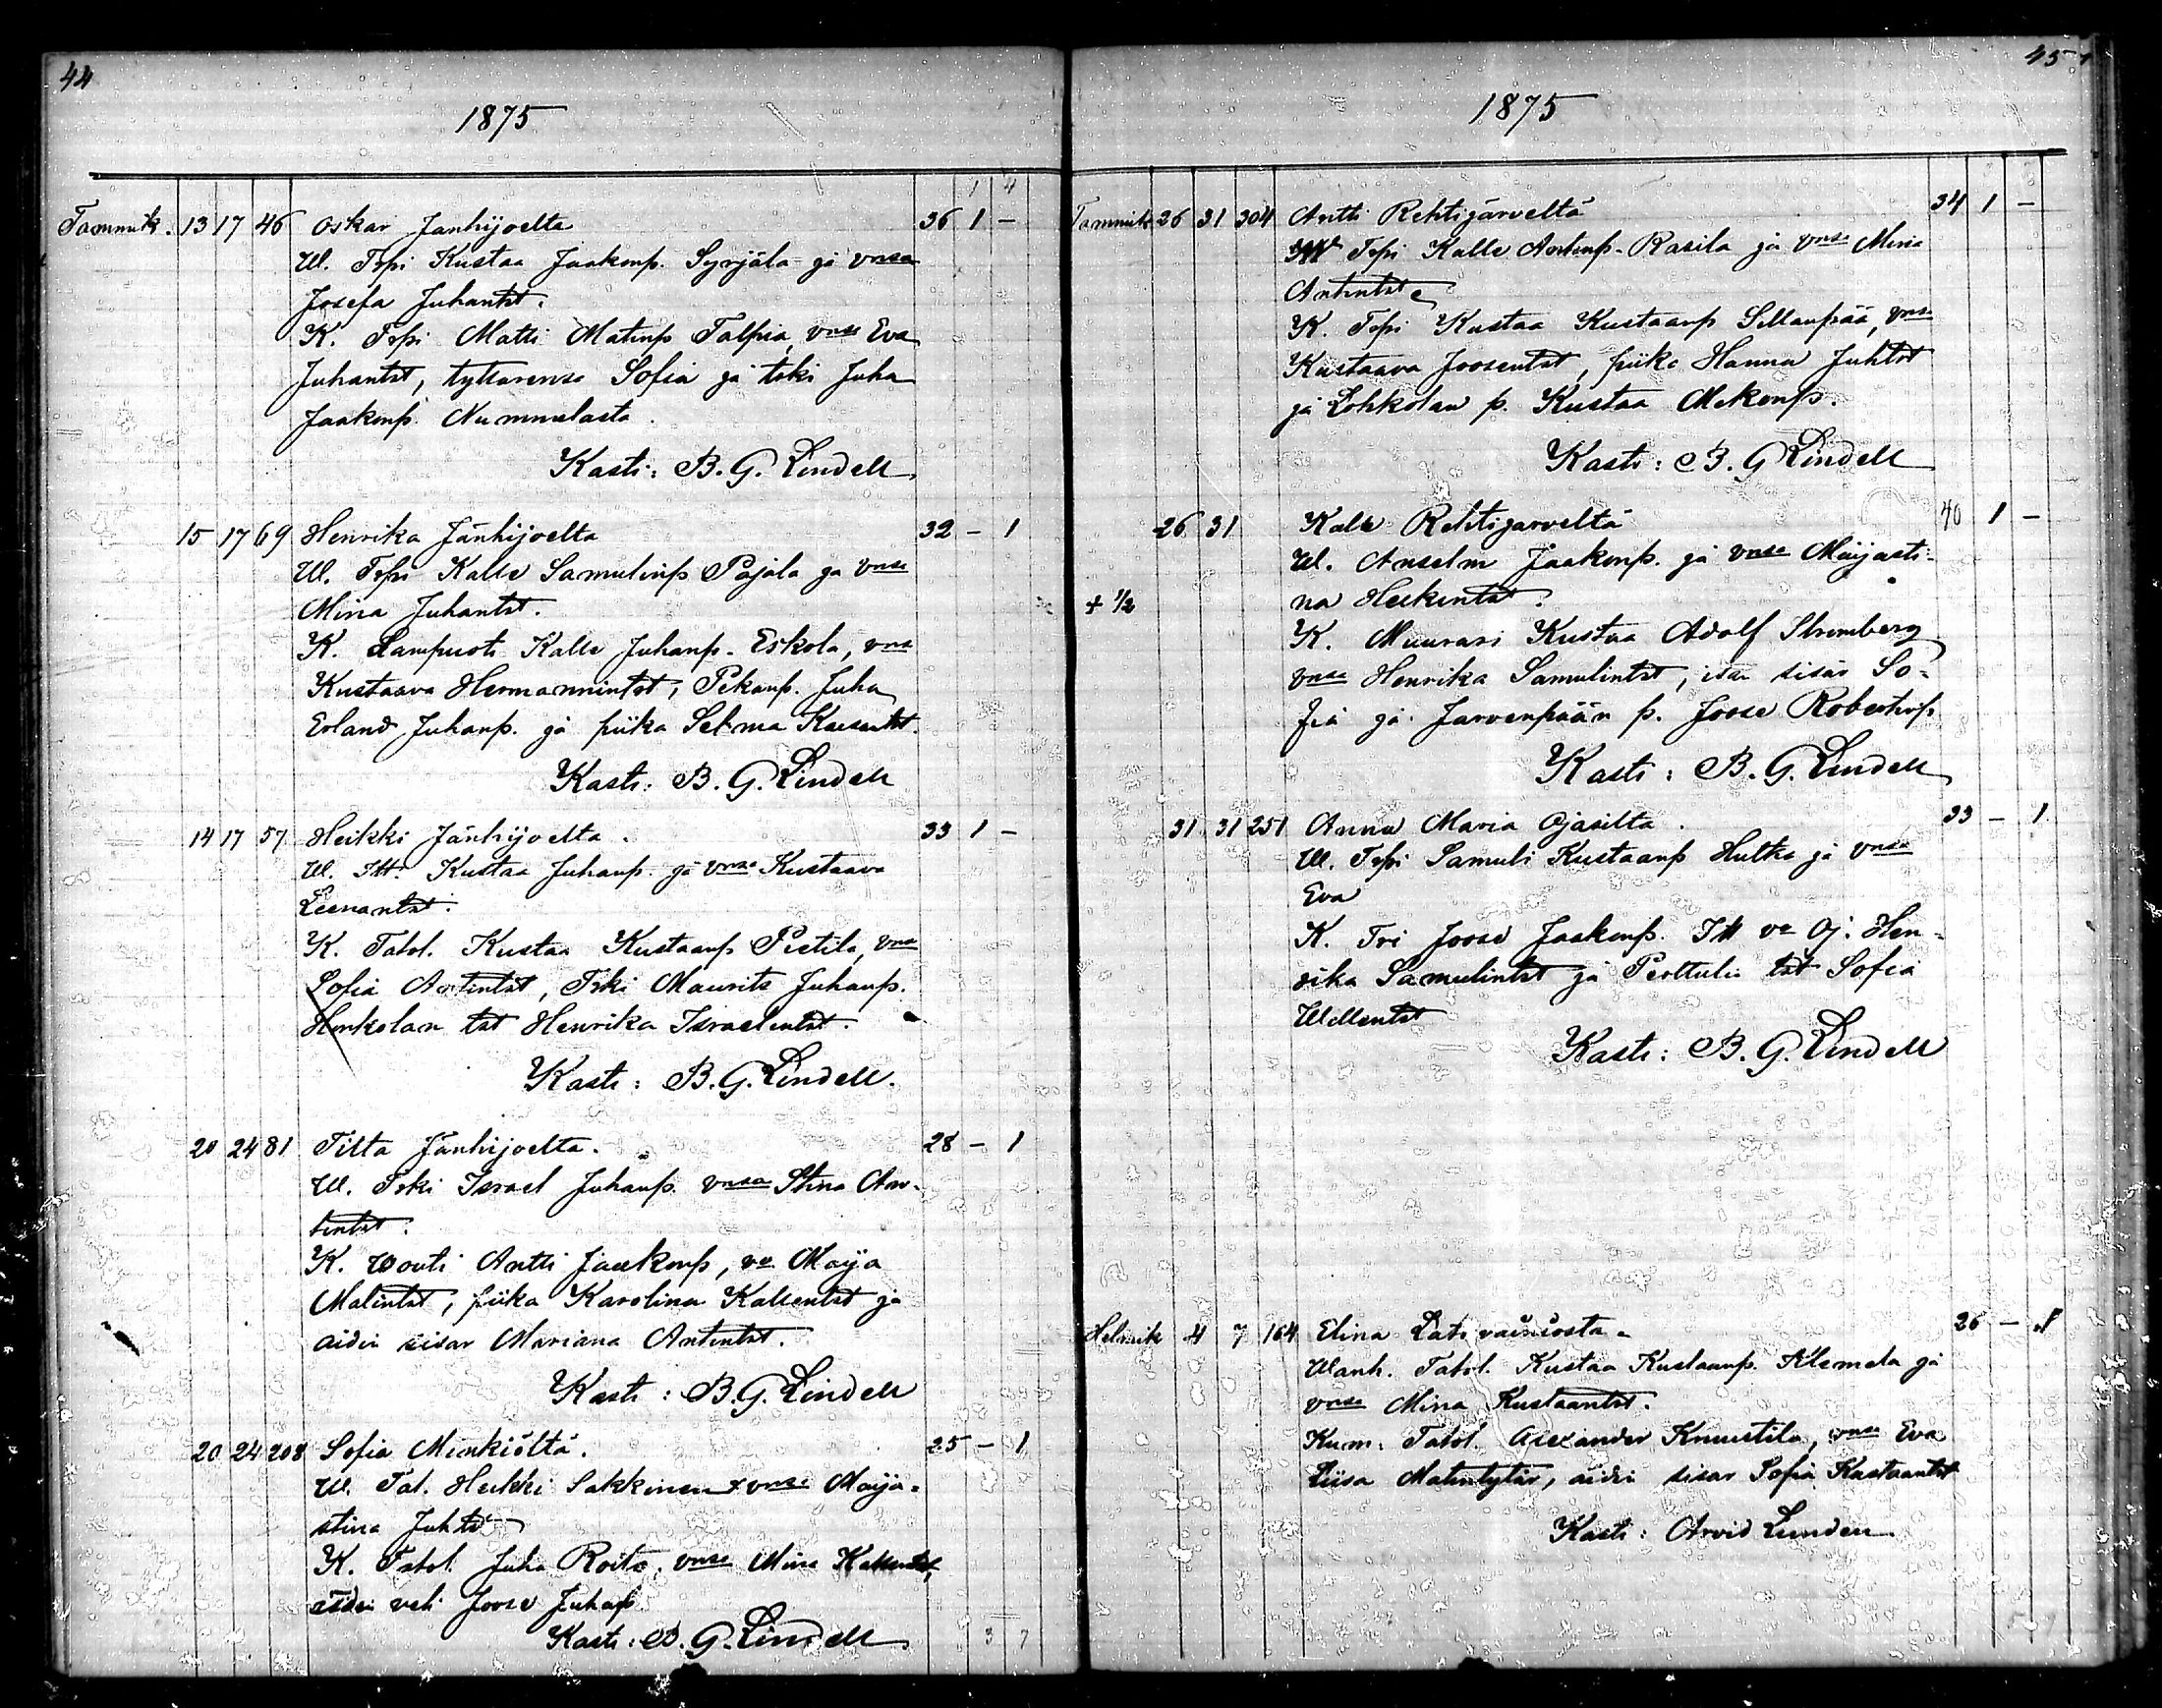 44
1875
1 4
Tammik. 13 17 46 Oskar Janhijoelta 36 1 -
W. Trpi Kustaa Jaakonp. Syrjälä ja vmsa
Josefa Juhantst.
K. Trpi Matti Matinp Talpia, vmsa Eva
Juhantst, tyttarensa Sofia ja tski Juha
Jaakonp. Nummelasta.
Kasti: B. G. Lindell
15 17 69 Henrika Jänhijoelta 32 - 1
W. Trpi Kalle Samulinp Pajala ja vmsa
Mina Juhantst.
K. Lampuoti Kalle Juhanp. Eskola, vmsa
Kustaava Hermannintst, Pekanp. Juha
Erland Juhanp. ja piika Selma
Kasti: B. G. Lindell
14 17 57 Heikki Jänhijoelta. 33 1 -
W. Itt. Kustaa Juhanp. ja vmsa Kustaava
Leenantst.
K. Tatol. Kustaa Kustaanp Pietila, vmsa
Sofia Antintst, Trki Maurits Juhanp.
Honkolan tst Henrika Israelintst.
Kasti: B. G. Lindell.
20 24 81 Tilta Jänhijoelta. 28 - 1
W. Trki Israel Juhanp. vmsa Stina An-
tintst.
K. Wouti Antti Jaakonp, va Maija
Matintst, piika Karolina Kallentst ja
aidin sisar Mariana Antintst.
Kasti: B. G. Lindell
20 24 208 Sofia Menkiöltä. 25 - 1
W. Tal. Heikki Sakkinen & vmsa Maija-
stina Juhtst
K. Tatol. Juha Roito, vmsa Mina Kallentst,
äidin veli Joose Juhanp
Kasti: B. G. Lindell
3 7
45
1875
Tammik 26 31 304 Antti Rehtijärveltä 34 1 -
W Trpi Kalle Antinp. Rasila ja vmsa Mina
Antintst
K. Trpi Kustaa Kustaanp Sillanpää, vmsa
Kustaava Joosentst, piika Hanna Juhtst
ja Lohkolan p. Kustaa Mikonp.
Kasti: B. G Lindell
26 31 Kalle Rehtijarveltä 40 1 -
W. Anselm Jaakonp. ja vmsa Maijasti-
+ 1/2 na Heikintst.
K. Muurari Kustaa Adolf Stromberg
vmsa Henrika Samulintst, isän sisär So-
fia ja Jarvenpään p. Joose Robertinp
Kasti: B. G. Lindell
31 31 251 Anna Maria Ojasilta. 33 - 1
W. Trpi Samuli Kustaanp Hulka ja vmsa
Eva
K. Tri Joose Jaakonp. Itt va Oj. Hen-
rika Samulintst ja Perttulin tst Sofia
Willentst
Kasti: B. G. Lindell
Helmik 4 7 164 Elina Latovainiosta. 26 - 1
Wanh. Tatol. Kustaa Kustaanp. Alemela ja
vmsa Mina Kustaantst.
Kum. Tatol. Alexander Knuutila, vmsa Eva
Liisa Matintytär, äidin sisar Sofia Kustaantst
Kasti: Arvid Lunden